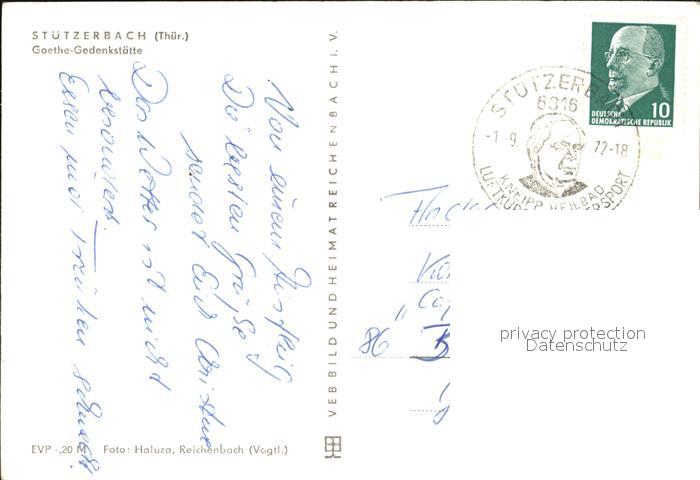 STÜTZERBACH (Thür.)
Goethe-Gedenkstätte
Von einem Ausflug
Die besten Grüße
sendet Euch
Das Wetter ist nicht
besonders.
Essen und Trinken schmeckt.
EVP -,20 M Foto: Haluza, Reichenbach (Vogtl.)
VEB BILD UND HEIMAT REICHENBACH i. V.
STÜTZERB
6316
-1.-9. 72-18
KNEIPP HEILBAD
LUFTKUR RSPORT
10
DEUTSCHE
DEMOKRATISCHE REPUBLIK
86
privacy protection
Datenschutz